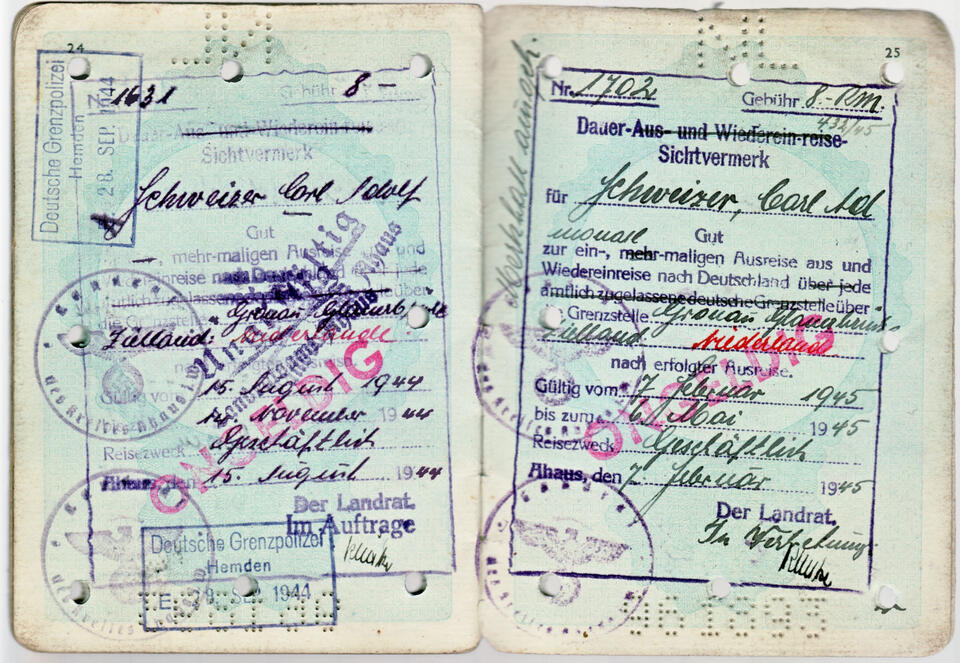 24
Deutsche Grenzpolizei
Hemden
28. SEP. 1944
Nr. 1631 Gebühr 8
Dauer-Aus- und Wiederein-reise-
Sichtvermerk
Schweizer Carl Adolf
Gut
mehr-maligen Ausreise aus und
Wiedereinreise nach Deutschland über jede
amtlich zugelassene deutsche Grenzstelle über
die Grenzstelle Gronau
Zielland: Niederlande
Ungültig
ONGELDIG
Gültig vom 15. August 1944
14. November 1944
Reisezweck Geschäftlich
Ahaus, den 15. August 1944
Der Landrat.
Im Auftrage
Deutsche Grenzpolizei
Hemden
E 29. SEP. 1944
25
NL
Nr. 1702 Gebühr 8.-RM.
432/45
Dauer-Aus- und Wiederein-reise-
Sichtvermerk
für Schweizer, Carl Ad
Gut
zur ein-, mehr-maligen Ausreise aus und
Wiedereinreise nach Deutschland über jede
amtlich zugelassene deutsche Grenzstelle über
Grenzstelle Gronau
Zielland Niederland
nach erfolgter Ausreise.
ONGELDIG
Gültig vom 7. Februar 1945
bis zum 6. Mai 1945
Reisezweck Geschäftlich
Ahaus, den 7. Februar 1945
Der Landrat.
In Vertretung